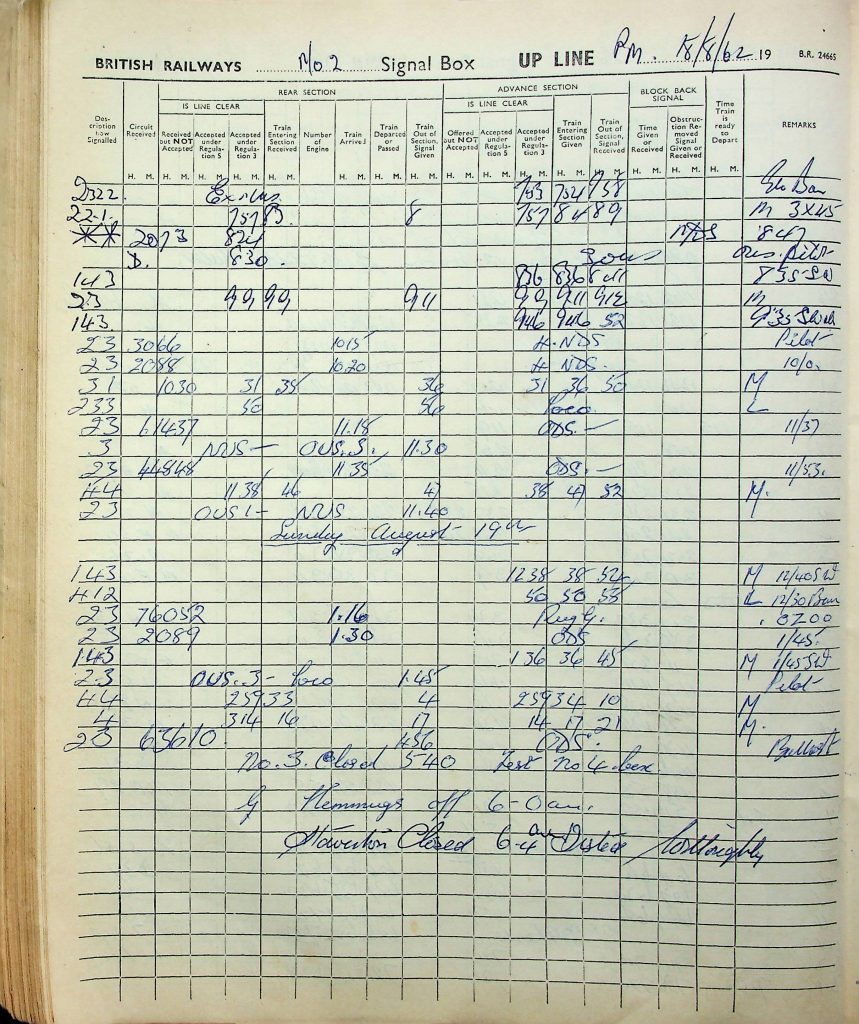 BRITISH RAILWAYS No 2 Signal Box UP LINE P.M. 18/8/62 19 B.R. 24665
REAR SECTION ADVANCE SECTION BLOCK BACK SIGNAL
IS LINE CLEAR IS LINE CLEAR
Description how Signalled Circuit Received Received but NOT Accepted Accepted under Regulation 5 Accepted under Regulation 3 Train Entering Section Received Number of Engine Train Arrived Train Departed or Passed Train Out of Section, Signal Given Offered but NOT Accepted Accepted under Regulation 5 Accepted under Regulation 3 Train Entering Section Given Train Out of Section Received Time Given or Received Obstruction Removed Signal Given or Received Time Train is ready to Depart REMARKS
H. M. H. M. H. M. H. M. H. M. H. M. H. M. H. M. H. M. H. M. H. M. H. M. H. M. H. M. H. M. H. M.
2322 753 754 758
22-1 757 83 8 757 84 89 M 3X45
2073 824 847
D. 830
143 836 836 841 835
23 99 99 911 99 911 912 M
143. 946 946 52 9-35
23 3066 1015 4. NDS Pilot
23 2088 1020 4 NDS. 10/0
31 1030 31 35 36 31 36 50 M
233 50 56 Loco L
23 61437 11.18 ODS.— 11/37
3 NUS— OUS.3. 11.30
23 44848 11.35 ODS.— 11/53.
44 11.38 46 47 38 47 52 M.
23 OUS1— NUS 11.40
Sunday August 19th
143 1238 38 52 M 12/40
412 50 50 55 L 12/30
23 76052 1.16 Rugby. 0Z00
23 2089 1.30 ODS 1/45.
143 136 36 45 M 1/45
23 OUS.3— Loco 1.45 Pilot
44 259 33 4 259 34 10 M
4 314 16 17 14 17 21 M.
23 63610. 456 ODS. Ballast
No. 3. Closed 5-40 Test No 4. box
G Hemmings off 6-0am.
Staverton Closed 6-4 am